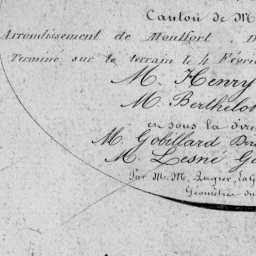 Canton de M
Arrondissement de Montfort. D
Terminé sur le terrain le 4 Févri
M. Henry
M. Berthelot
en sous la dire
M. Gobillard Dir
M. Lesné Gé
Par M. M.
Géomètre du